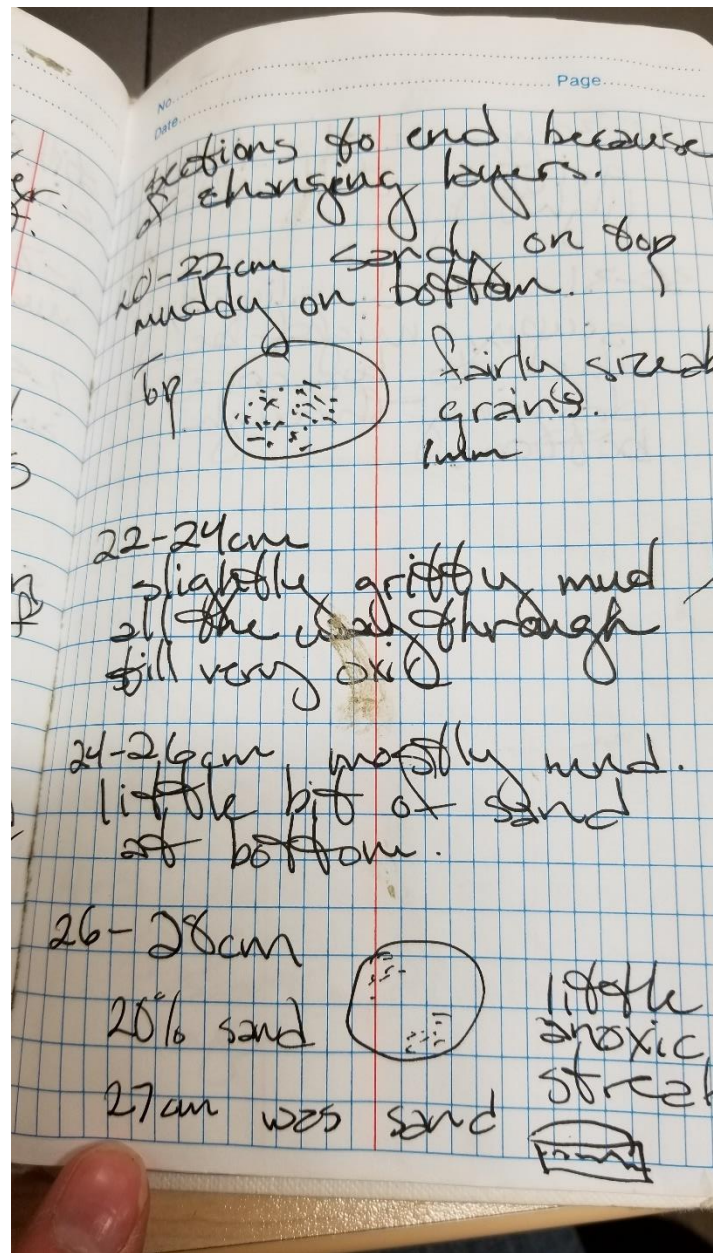 No.
Page
Date
sections to end because
of changing layers.
20-22cm sandy on top
muddy on bottom.
Top
fairly sizeab
grains.
1mm
22-24cm
slightly gritty mud
all the way through
still very oxic
24-26cm mostly mud.
little bit of sand
at bottom.
26-28cm
20% sand
little
anoxic
streak
27cm was sand